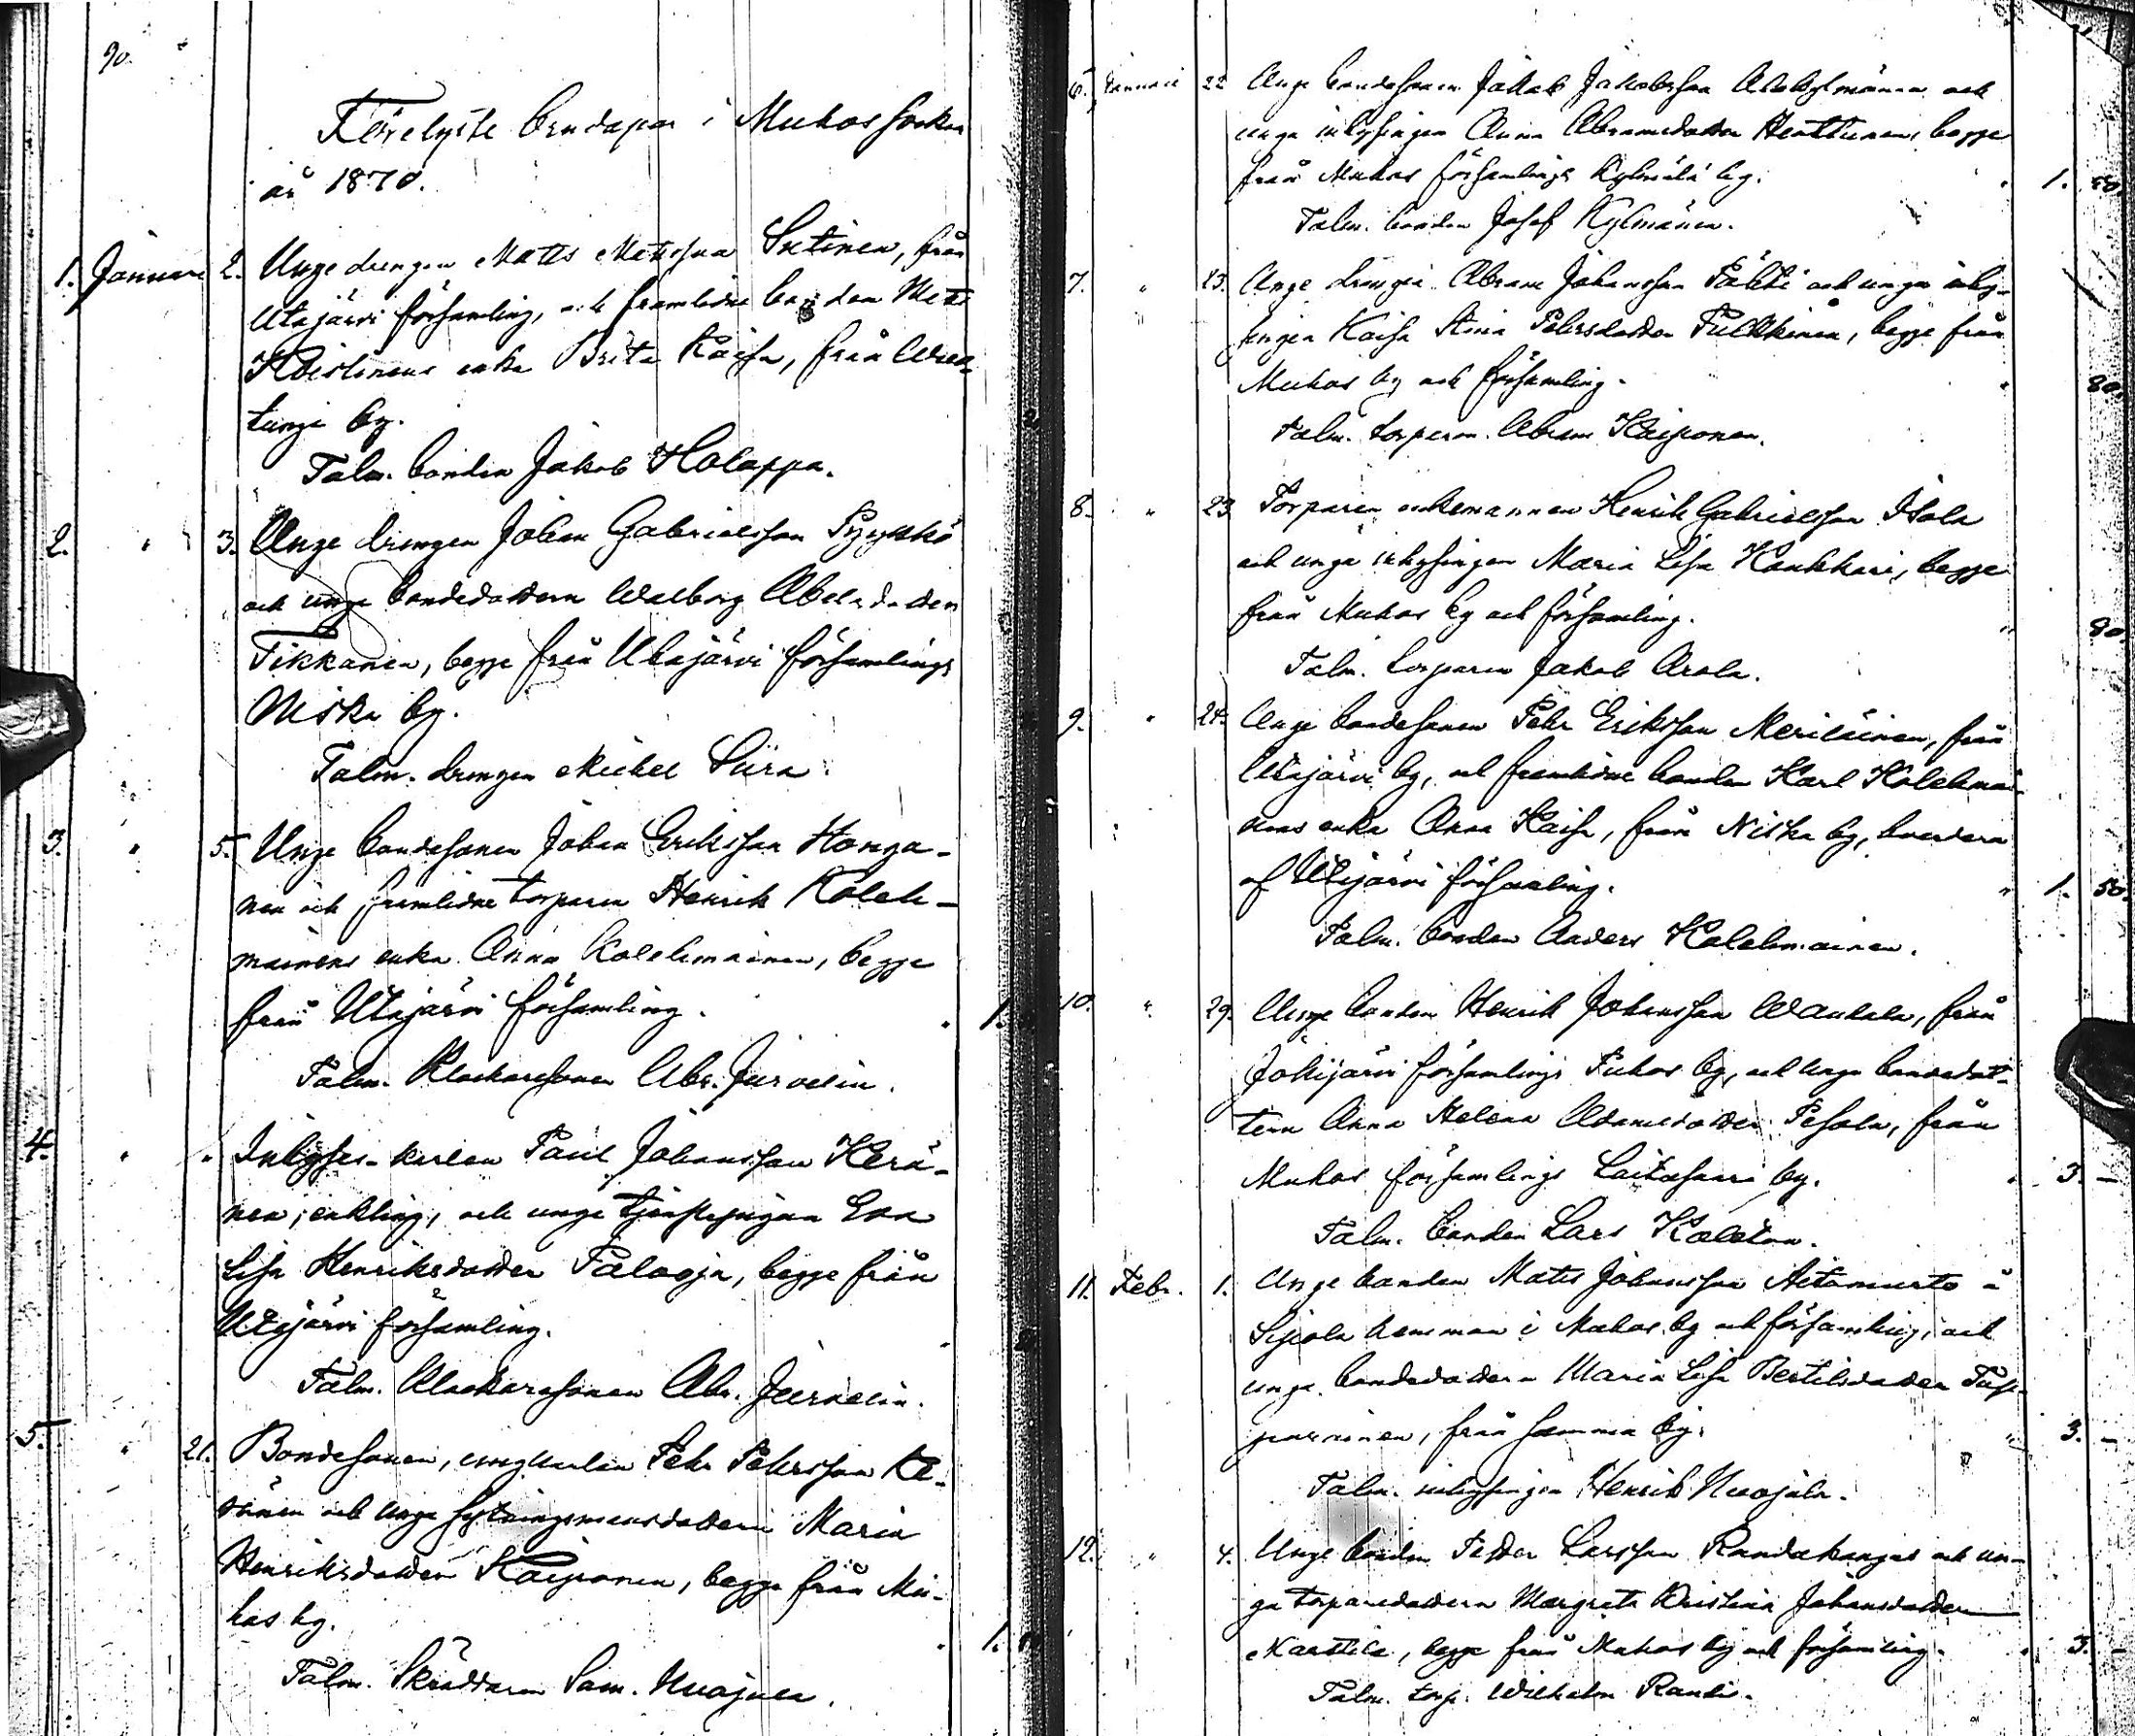 90.
Förelyste brudapar i Muhos socken
år 1870.
1. Januari 2. Unge drengen Matts Matsson Sutinen, från
Utajärvi församling, och framlidne bonden Matts
Hoistinens enka Brita Kaisa, från
by.
Talm. bonden Jakob Holappa.
2. " 3. Unge drengen Johan Gabrielsson Pyykkö
och unga bondedottern Walborg Abelsdotter
Tikkanen, begge från Utajärvi församlings
Niska by.
Talm. drengen Mickel Siira.
3. " 5. Unge bondesonen Johan Eriksson Honga-
nen och framlidne torparen Henrik Koleh-
mainens enka Anna Kolehmainen, begge
från Utajärvi församling. " 1.
Talm. Klockaresonen Abr. Jurvelin.
4. " " Inhyses-karlen Paul Johansson Kerä-
nen, enkling, och unga tjenstepigan Eva
Lisa Henriksdotter Palooja, begge från
Utajärvi församling. "
Talm. Klockaresonen Abr. Jurvelin.
5. " 21. Bondesonen, ungkarlen Pehr Pehrsson Ke-
och unga sytningsmansdottern Maria
Henriksdotter Kaiponen, begge från Mu-
hos by. " 1.
Talm. Skräddaren Sam. Nuojua.
6. Januari 22 Unge bondesonen Jakob Jakobsson Alakylmänen och
unga inhysingen Anna Abramsdotter Henttunen, begge
från Muhos församlings Kylmälä by. " 1. 50.
Talm. bonden Josef Kylmänen.
7. " 23. Unge drengen Abram Johansson Pähti och unga inhy-
singen Kaisa Stina Pehrsdotter Pulkkinen, begge från
Muhos by och församling. " 80.
Talm. torparen Abram Kaiponen.
8. " 23. Torparen enkemannen Henrik Gabrielsson Isola
och unga inhysingen Maria Lisa Kaukkari, begge
från Muhos by och församling. " 80.
Talm. torparen Jakob Arola.
9. " 24. Unge bondesonen Pehr Eriksson Meriläinen, från
Utajärvi by, och framlidne bonden Karl Kolehmai-
nens enka Anna Kaisa, från Niska by, hvardera
af Utajärvi församling. " 1. 50.
Talm. bonden Anders Kolehmainen.
10. " 29. Unge bonden Henrik Johansson Waukala, från
Jokijärvi församlings Puhos by, och unga bondedot-
tern Anna Helena Adamsdotter Pesola, från
Muhos församlings Laitasaari by. " 3. –
Talm. bonden Lars Kaleton.
11. Febr. 1. Unge bonden Mats Johansson Aitomurto å
Sipola hemman i Muhos by och församling, och
unga bondedottern Maria Lisa Bertilsdotter Tup-
purainen, från samma by. " 3. –
Talm. inhysingen Henrik Nuojua.
12. " 4. Unge bonden Petter Larsson Randakangas och un-
ga torparedottern Margreta Kristina Johansdotter
Marttila, begge från Muhos by och församling. " 3. –
Talm. torp. Wilhelm Ranki.